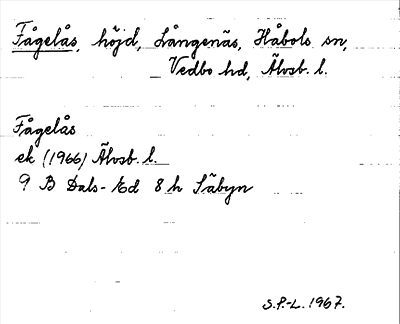 Fågelås, höjd, Långenäs, Håbols sn,
Vedbo hd, Älvsb. l.
Fågelås
ek (1966) Älvsb. l.
9 B Dals-Ed 8 h Säbyn
S.P.-L. 1967.